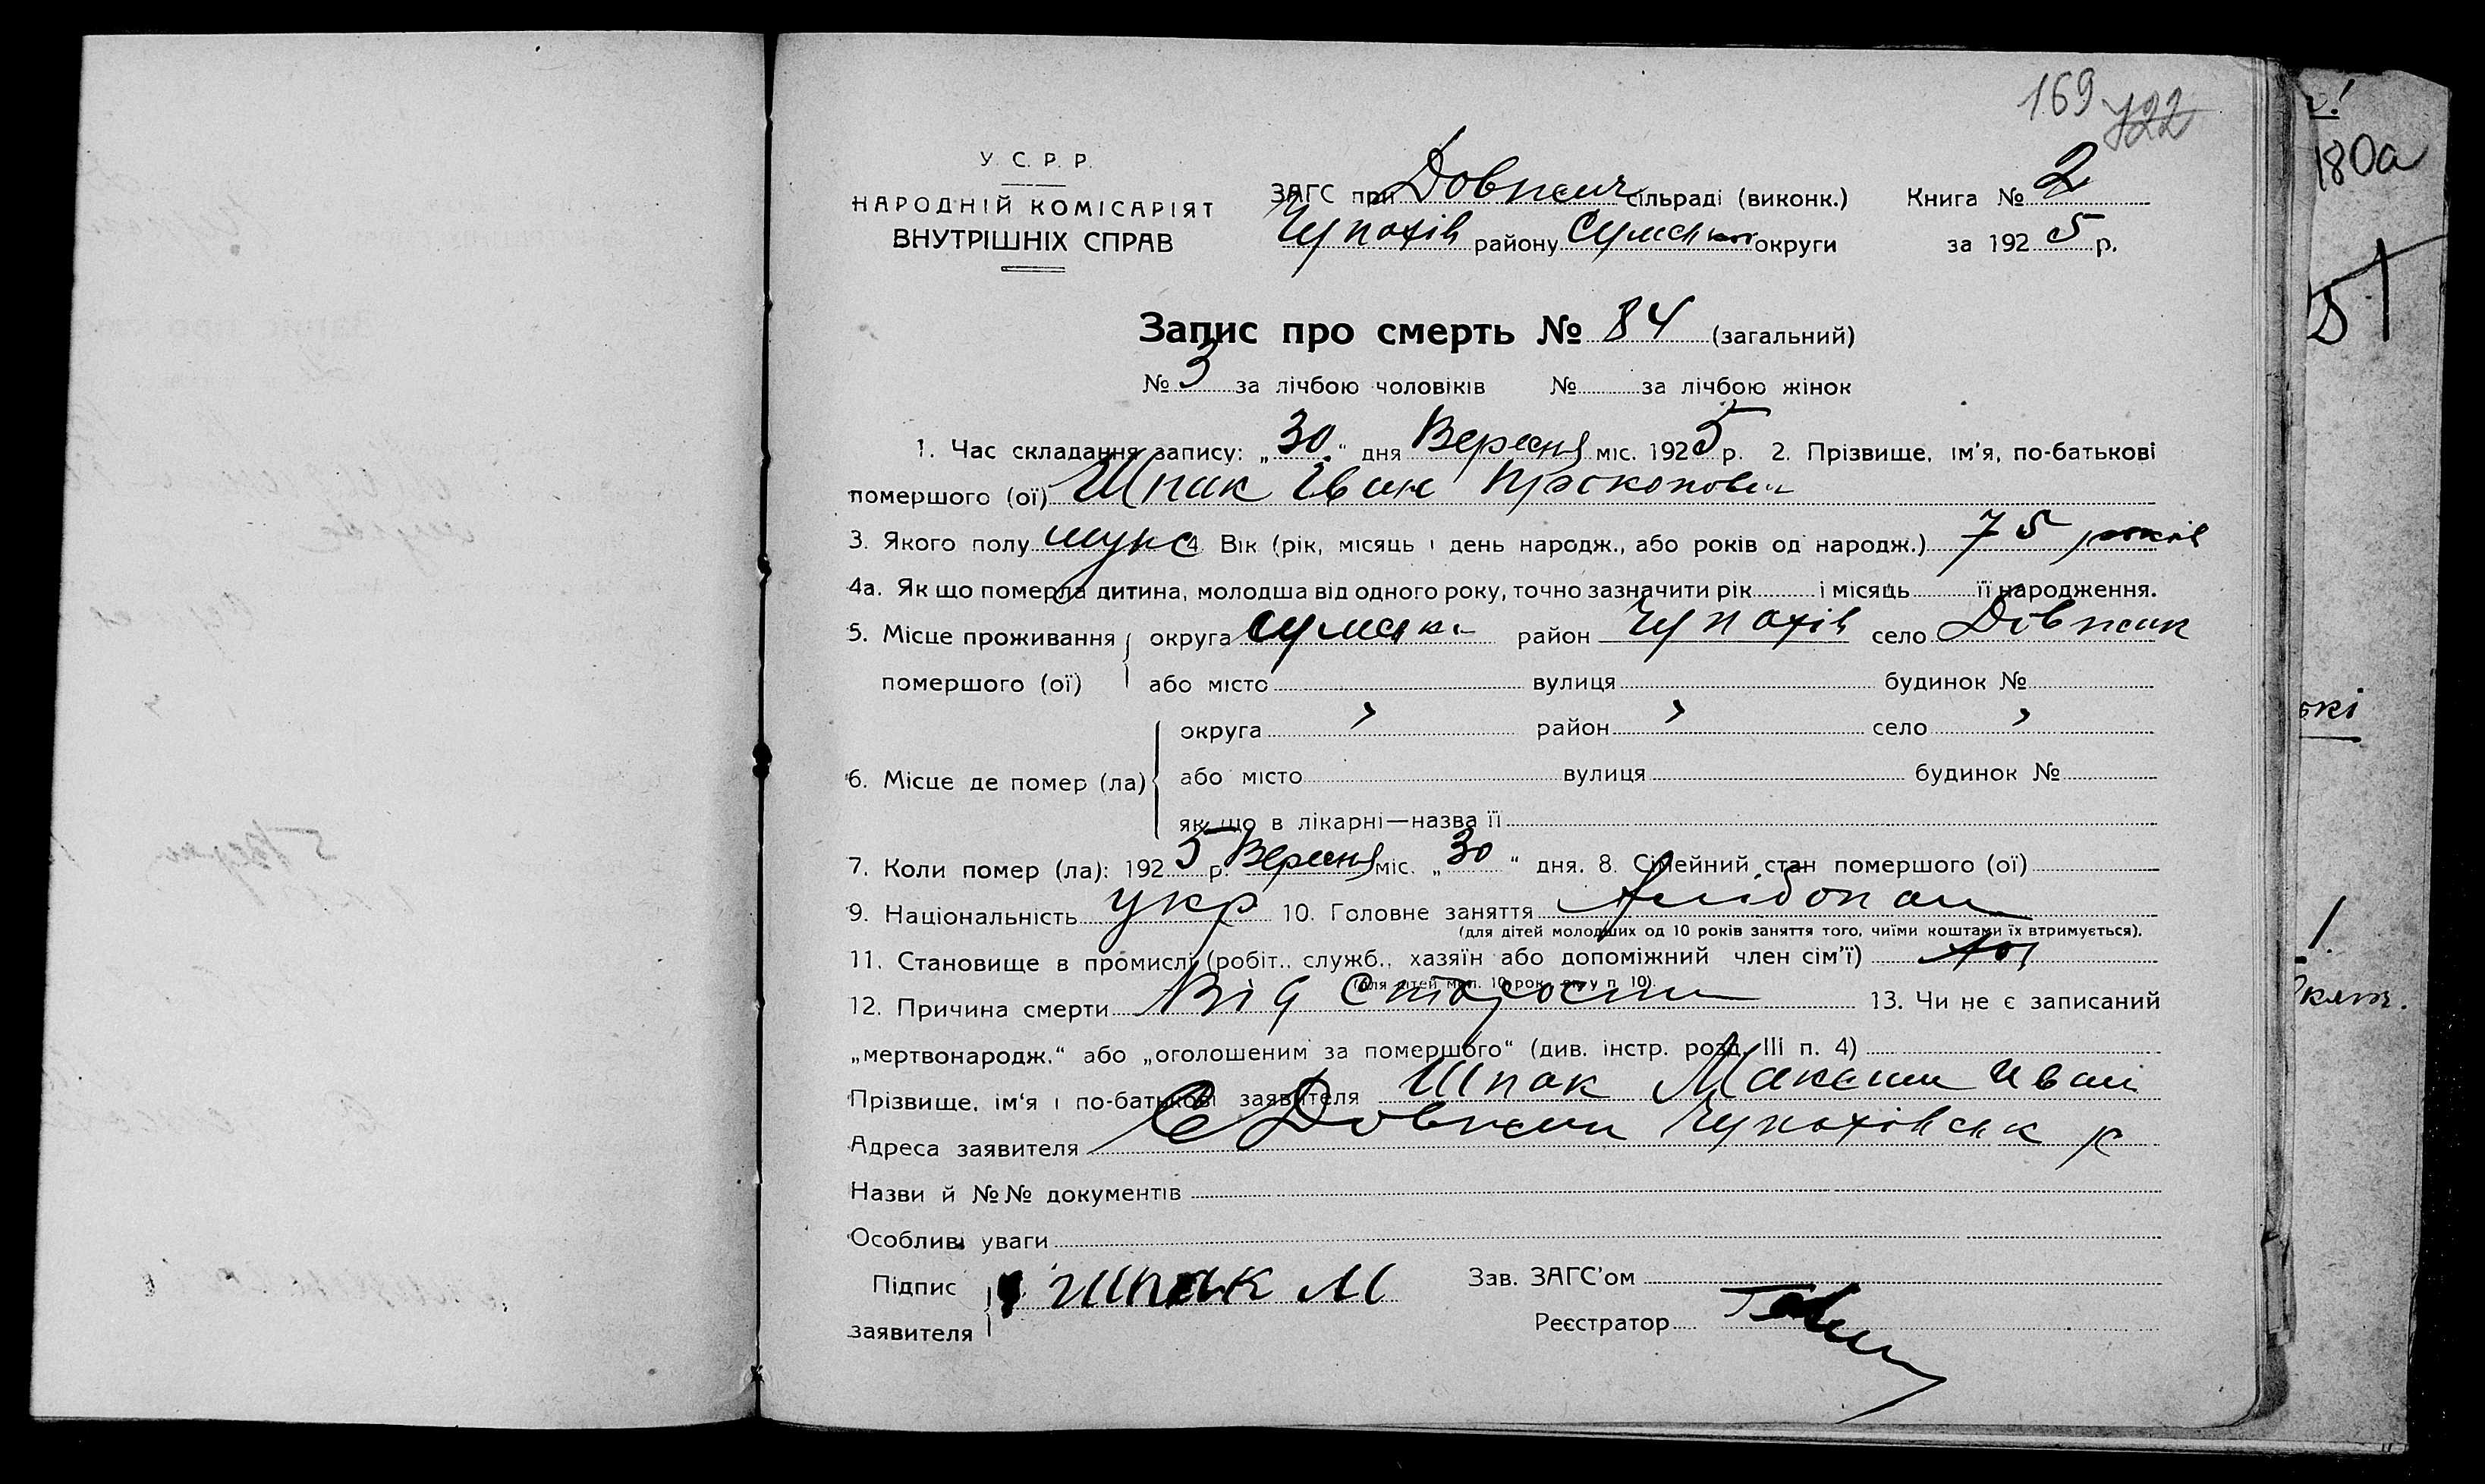 169 122
У. С. Р. Р.
НАРОДНІЙ КОМІСАРІЯТ
ВНУТРІШНІХ СПРАВ
ЗАГС при Довжич сільраді (виконк.) Книга № 2
Чупахів району Сумської округи за 1925 р.
Запис про смерть № 84 (загальний)
№ 3 за лічбою чоловіків № за лічбою жінок
1. Час складання запису: „30“ дня Вересня міс. 1925 р. 2. Прізвище, ім'я, по-батькові
помершого (ої) Шпак Іван Прокопович
3. Якого полу муж 4. Вік (рік, місяць і день народж., або років од народж.) 75 років
4а. Як що померла дитина, молодша від одного року, точно зазначити рік і місяць її народження.
5. Місце проживання округа Сумська район Чупахів село Довжик
помершого (ої) або місто вулиця будинок №
округа " район " село "
6. Місце де помер (ла) або місто вулиця будинок №
як що в лікарні—назва її
7. Коли помер (ла): 1925 р. Вересня міс. „30“ дня. 8. Сімейний стан помершого (ої)
9. Національність укр 10. Головне заняття
(для дітей молодших од 10 років заняття того, чиїми коштами їх втримується).
11. Становище в промислі (робіт., служб., хазяїн або допоміжний член сім'ї)
(для дітей мол. 10 рок. як у п. 10).
12. Причина смерти Від старости 13. Чи не є записаний
„мертвонародж.“ або „оголошеним за помершого“ (див. інстр. розд. III п. 4)
Прізвище, ім'я і по-батькові заявителя Шпак Максим Іван
Адреса заявителя С Довжик Чупахівськ р
Назви й №№ документів
Особливі уваги
Підпис Шпак М Зав. ЗАГС'ом
заявителя Реєстратор
180а